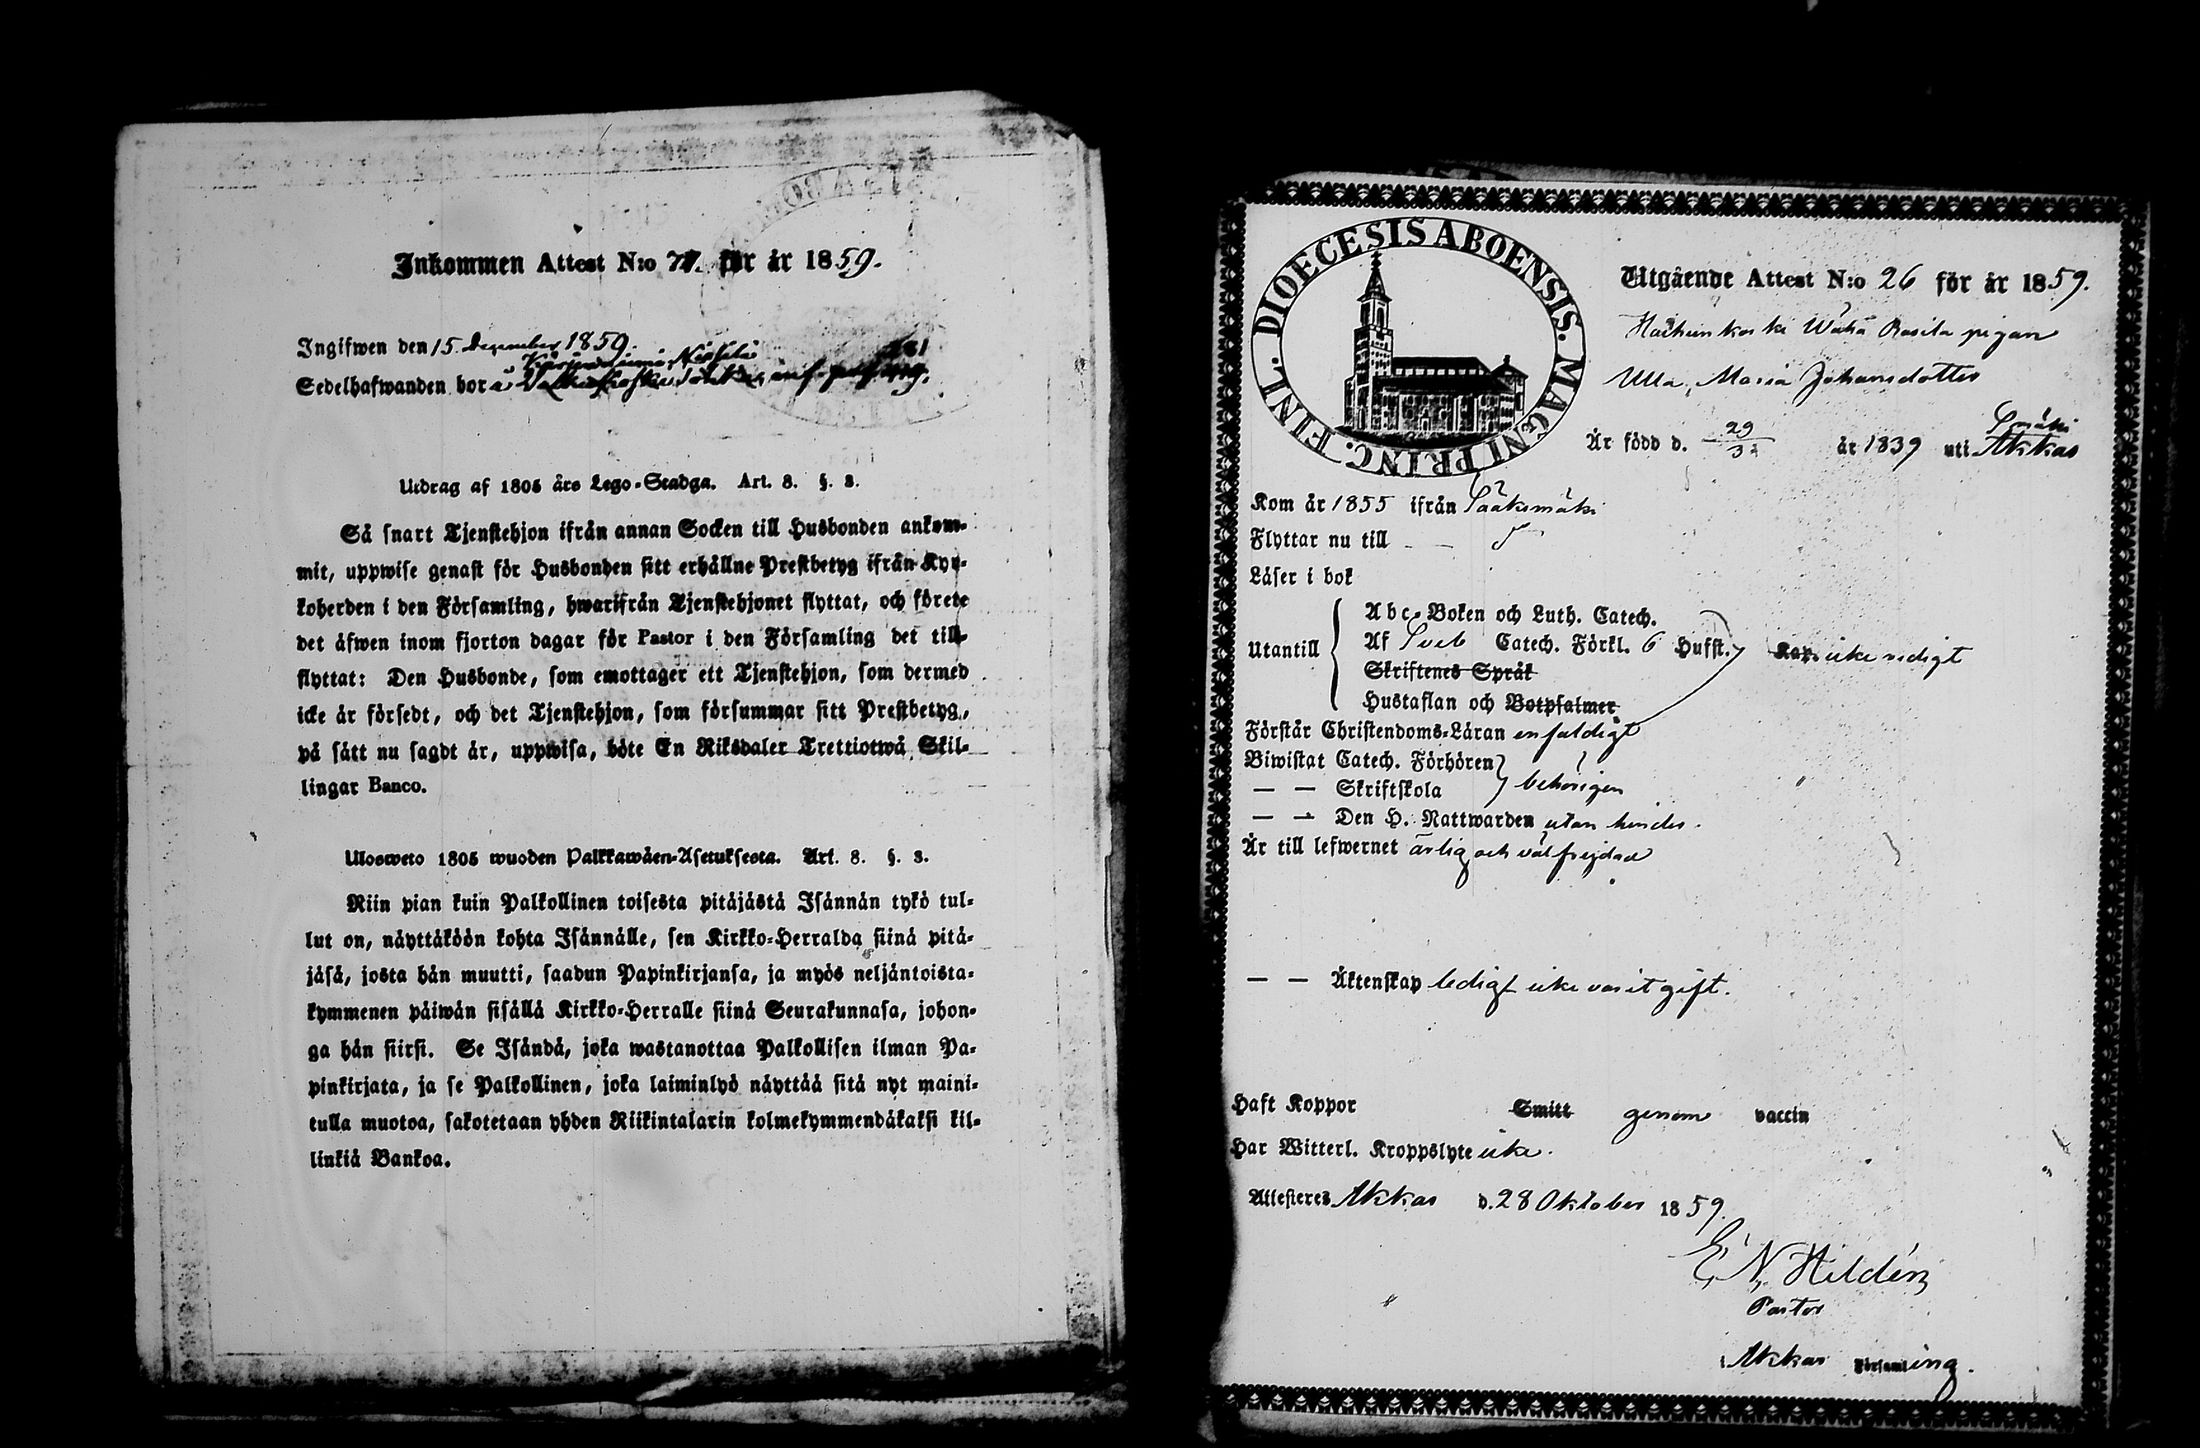 Inkommen Attest N:o 71. för år 1859.
Ingifwen den 15 December 1859.
Sedelhafwanden bor å
Utdrag af 1805 års Lego-Stadga. Art. 8. §. 8.
Så snart Tjenstehjon ifrån annan Socken till Husbonden ankom-
mit, uppwise genast för Husbonden sitt erhållne Prestbetyg ifrån Kyr-
koherden i den Församling, hwarifrån Tjenstehjonet flyttat, och förete
det äfwen inom fjorton dagar för Pastor i den Församling det till-
flyttat: Den Husbonde, som emottager ett Tjenstehjon, som dermed
icke är försedt, och det Tjenstehjon, som försummar sitt Prestbetyg,
på sätt nu sagdt är, uppwisa, böte En Riksdaler Trettiotwå Skil-
lingar Banco.
Ulosweto 1805 wuoden Palkkawäen-Asetuksesta. Art. 8. §. 8.
Niin pian kuin Palkollinen toisesta pitäjästä Isännän tykö tul-
lut on, näyttäköön kohta Isännälle, sen Kirkko-Herralda siinä pitä-
jäsä, josta hän muutti, saadun Papinkirjansa, ja myös neljäntoista-
kymmenen päiwän sisällä Kirkko-Herralle siinä Seurakunnasa, johon-
ga hän siirsi. Se Isändä, joka wastanottaa Palkollisen ilman Pa-
pinkirjata, ja se Palkollinen, joka laiminlyö näyttää sitä nyt maini-
tulla muotoa, sakotetaan yhden Riikintalarin kolmekymmendäkaksi kil-
linkiä Bankoa.
DIOECESIS ABOENSIS. MAGNI PRINC. FINL.
Utgående Attest N:o 26 för år 1859.
Wähä Rasila pigan
Ulla Maria Johansdotter
Är född d. 29/3 år 1839 uti Akkas
Kom år 1855 ifrån Sääksmäki
Flyttar nu till
Läser i bok
Utantill
Abc-Boken och Luth. Catech.
Af Sveb Catech. Förkl. 6 Hufst.
Skriftenes Språk
Hustaflan och Botpsalmer
icke redigt
Förstår Christendoms-Läran enfaldigt
Biwistat Catech. Förhören
— — Skriftskola
behörigen
— — Den H. Nattwarden utan hinder.
Är till lefwernet ärlig och välfrejdad
— — Äktenskap ledig icke varit gift.
Haft Koppor Smitt genom vaccin
Har Witterl. Kroppslyte icke.
Attesteres Akkas d. 28 Oktober 1859.
E. N. Hildén
Pastor
i Akkas Församling.